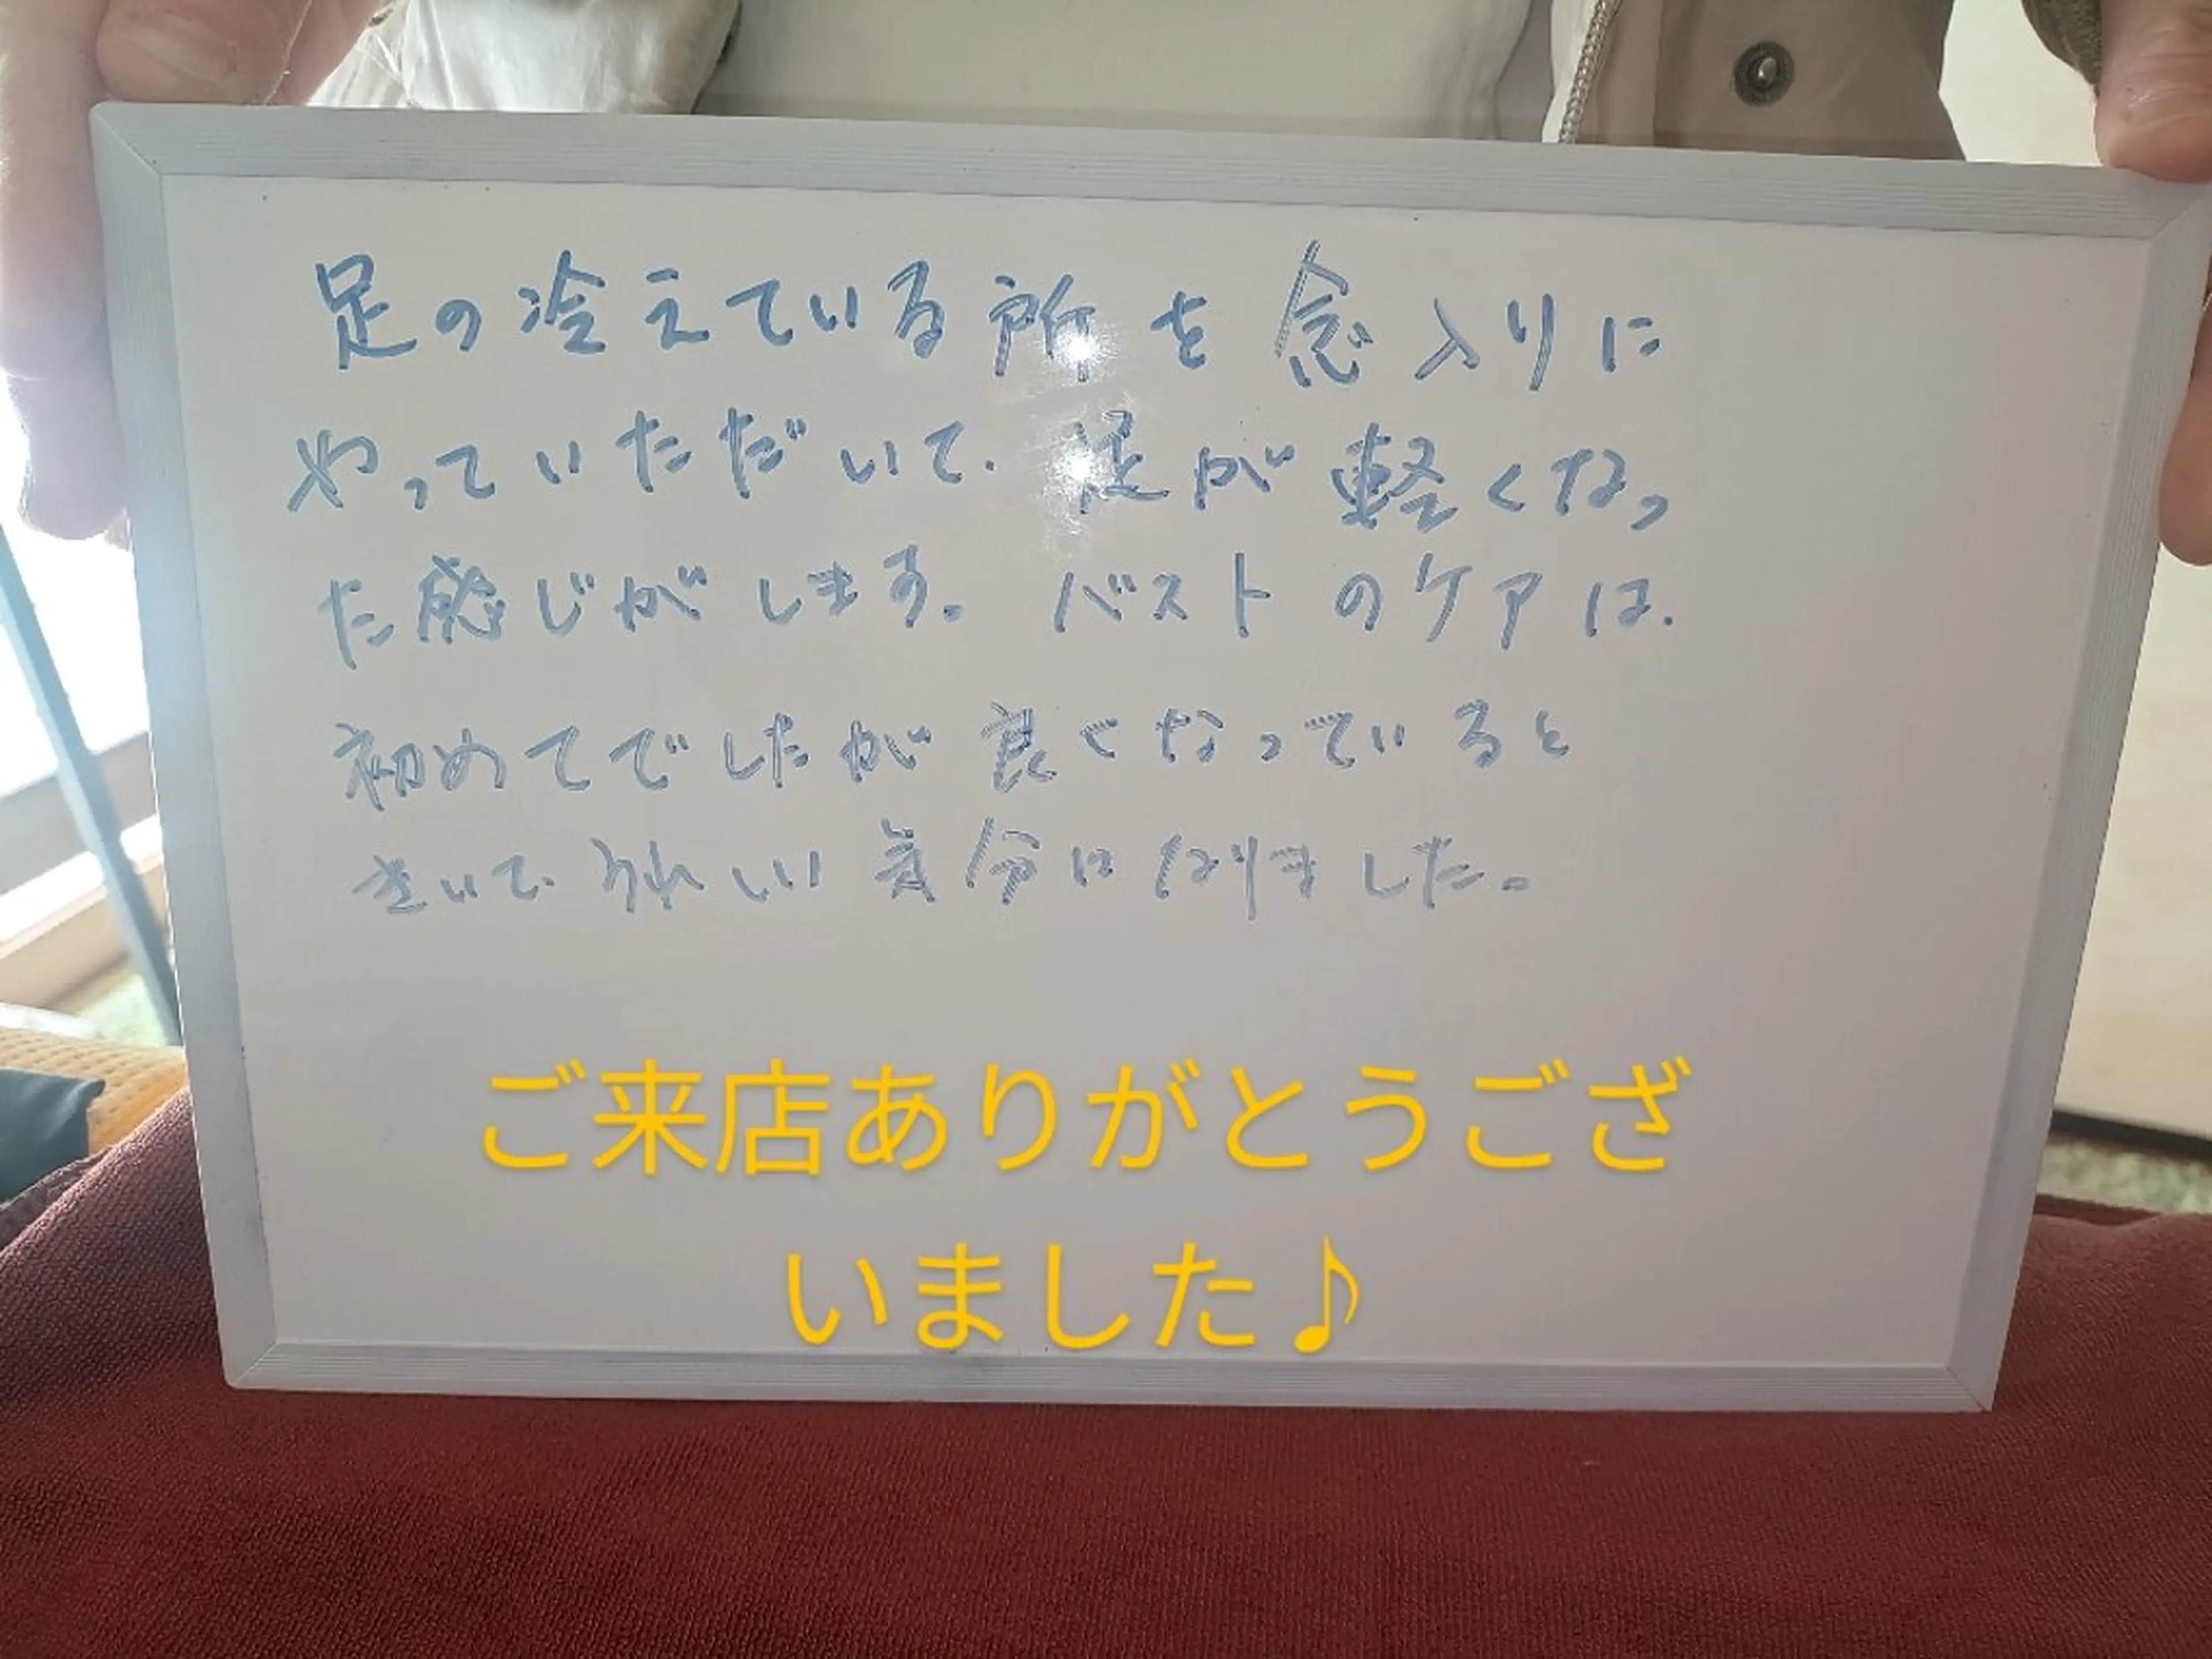 足の冷えている所を念入りに
やっていただいて、足が軽くなっ
た感じがします。バストのケアは、
初めてでしたが良くなっていると
きいて、うれしい気分になりました。
ご来店ありがとうござ
いました♪